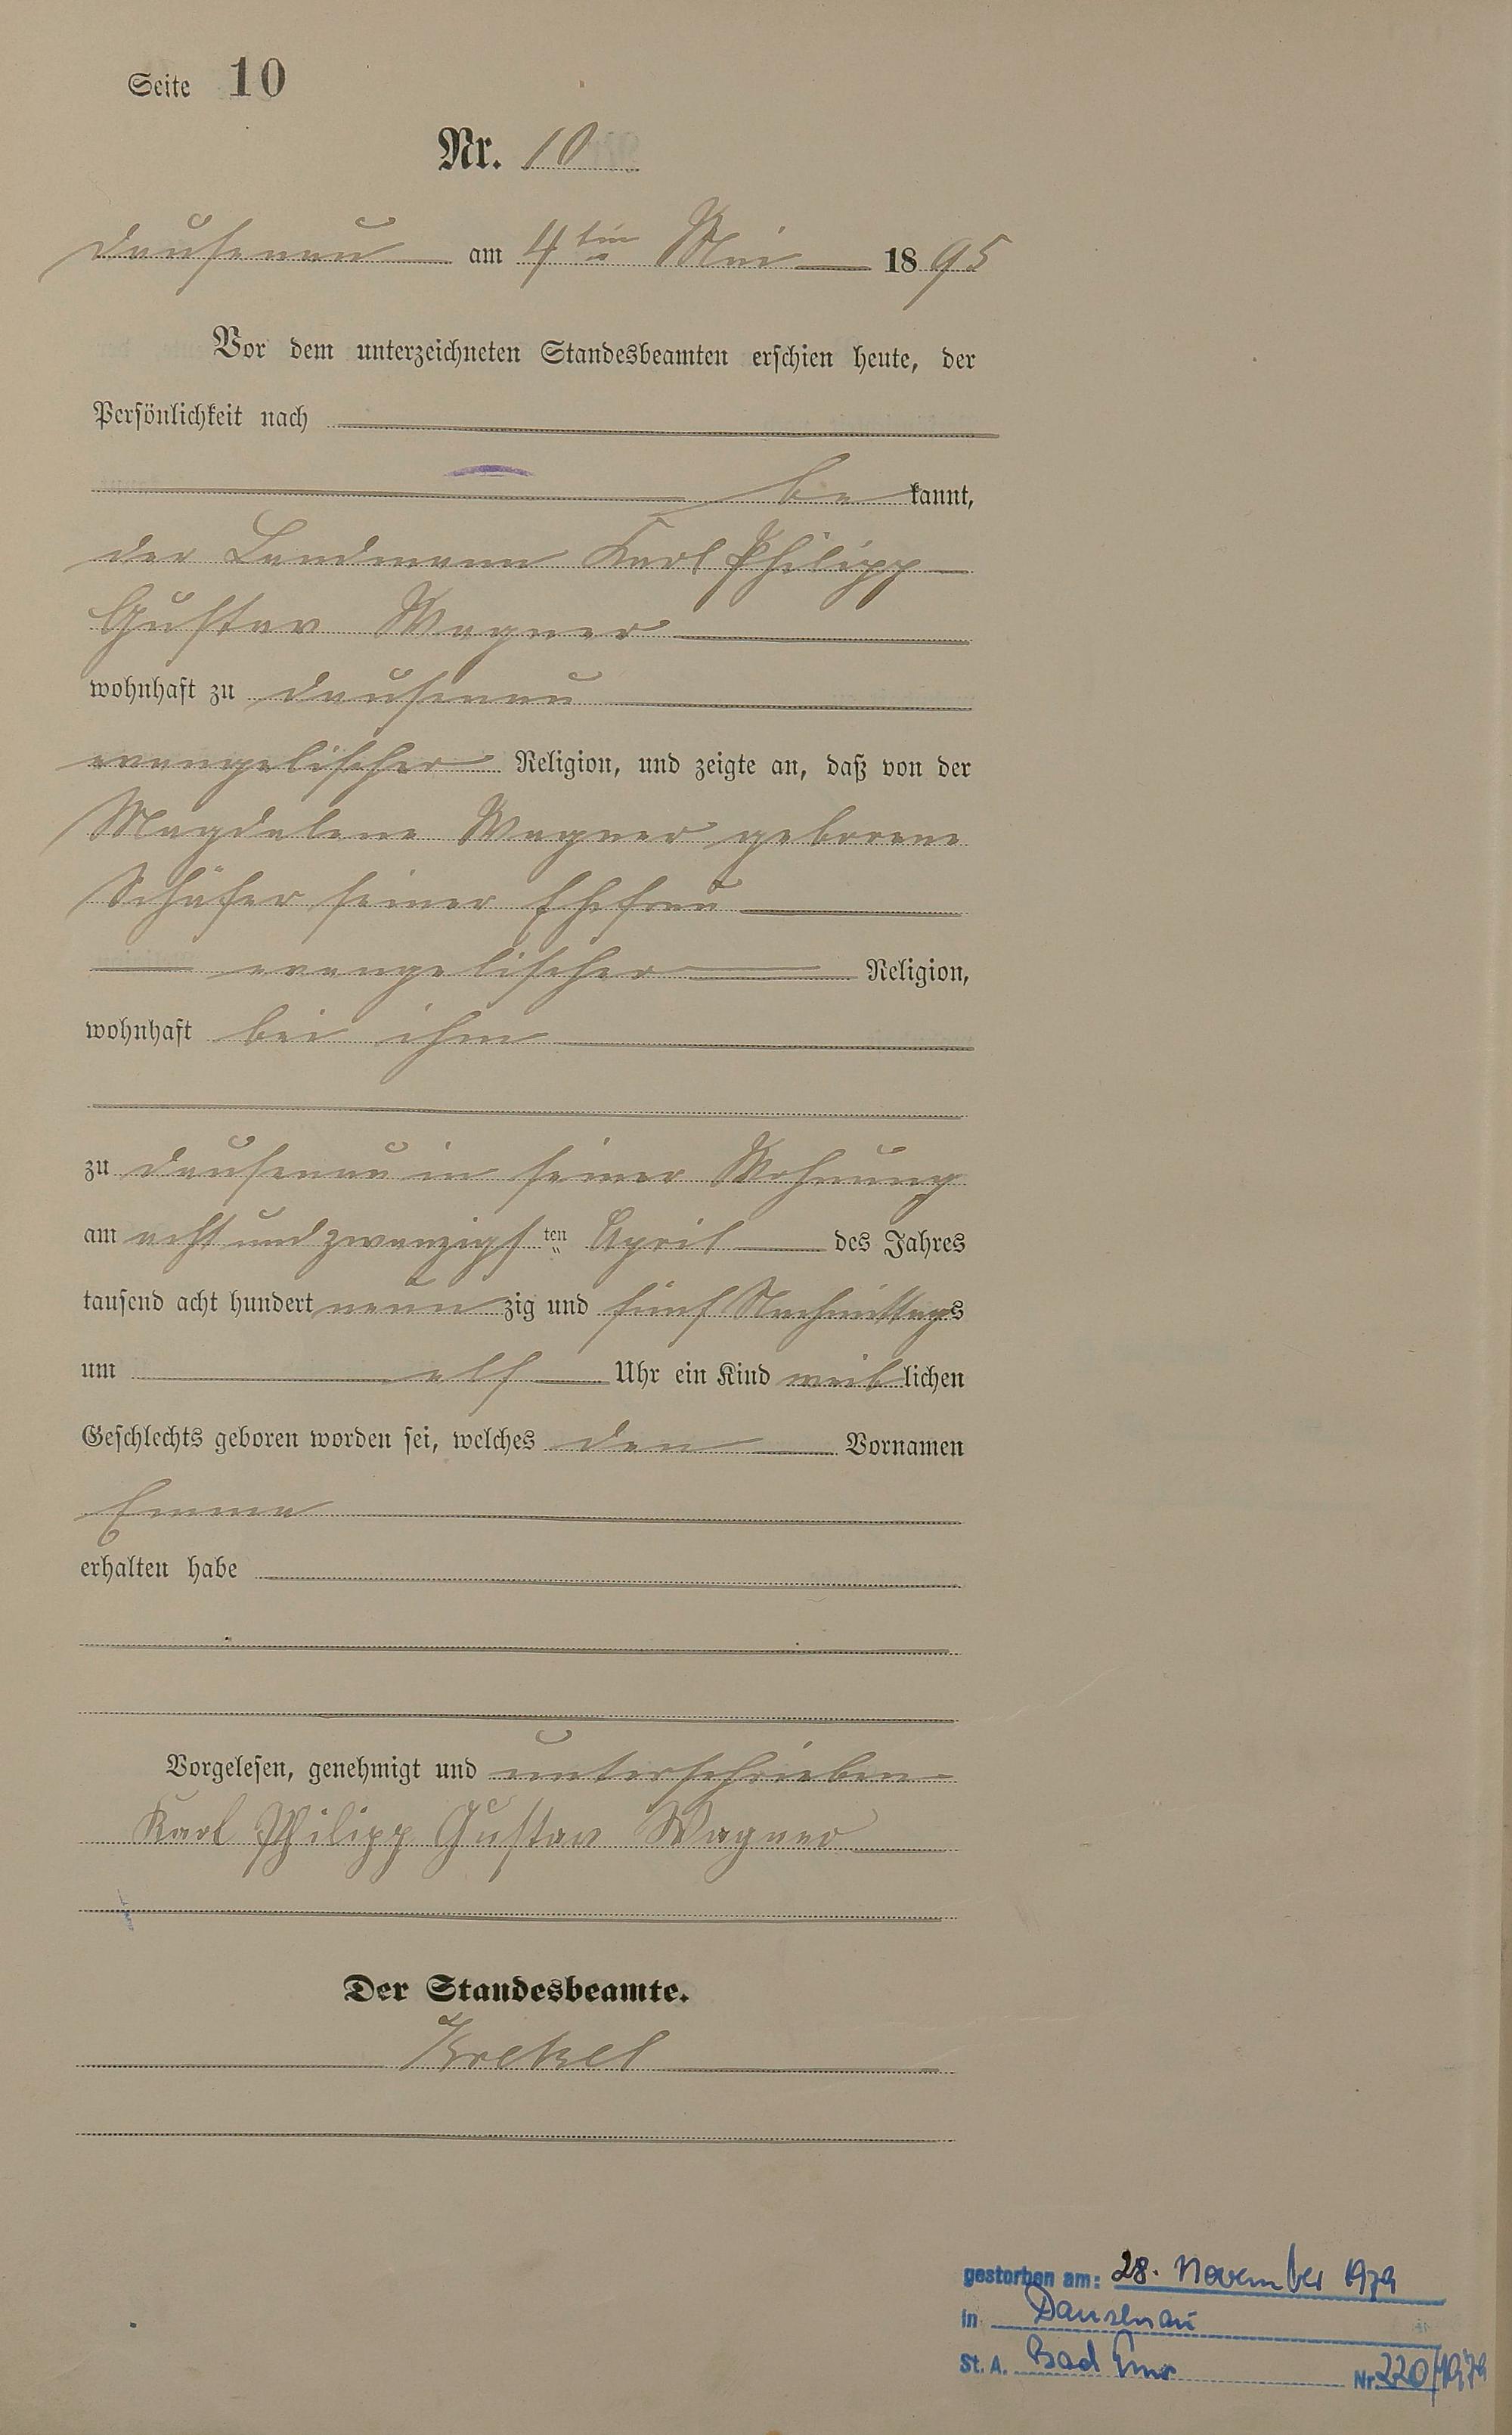 Seite 10
Nr. 10
Dausenau am 4ten Mai 1895
Vor dem unterzeichneten Standesbeamten erschien heute, der
Persönlichkeit nach
be kannt,
der Landmann Karl Philipp
Gustav Wagner
wohnhaft zu Dausenau
evangelischer Religion, und zeigte an, daß von der
Magdalene Wagner geborene
Schäfer seiner Ehefrau
evangelischer Religion,
wohnhaft bei ihm
zu Dausenau in seiner Wohnung
am acht und zwanzigsten April des Jahres
tausend acht hundert neun zig und fünf Nachmittags
um elf Uhr ein Kind weiblichen
Geschlechts geboren worden sei, welches den Vornamen
Emma
erhalten habe
Vorgelesen, genehmigt und unterschrieben
Karl Philipp Gustav Wagner
Der Standesbeamte.
Krekel
gestorben am: 28. November 1979
in Dausenau
St. A. Bad Ems Nr. 220/1979